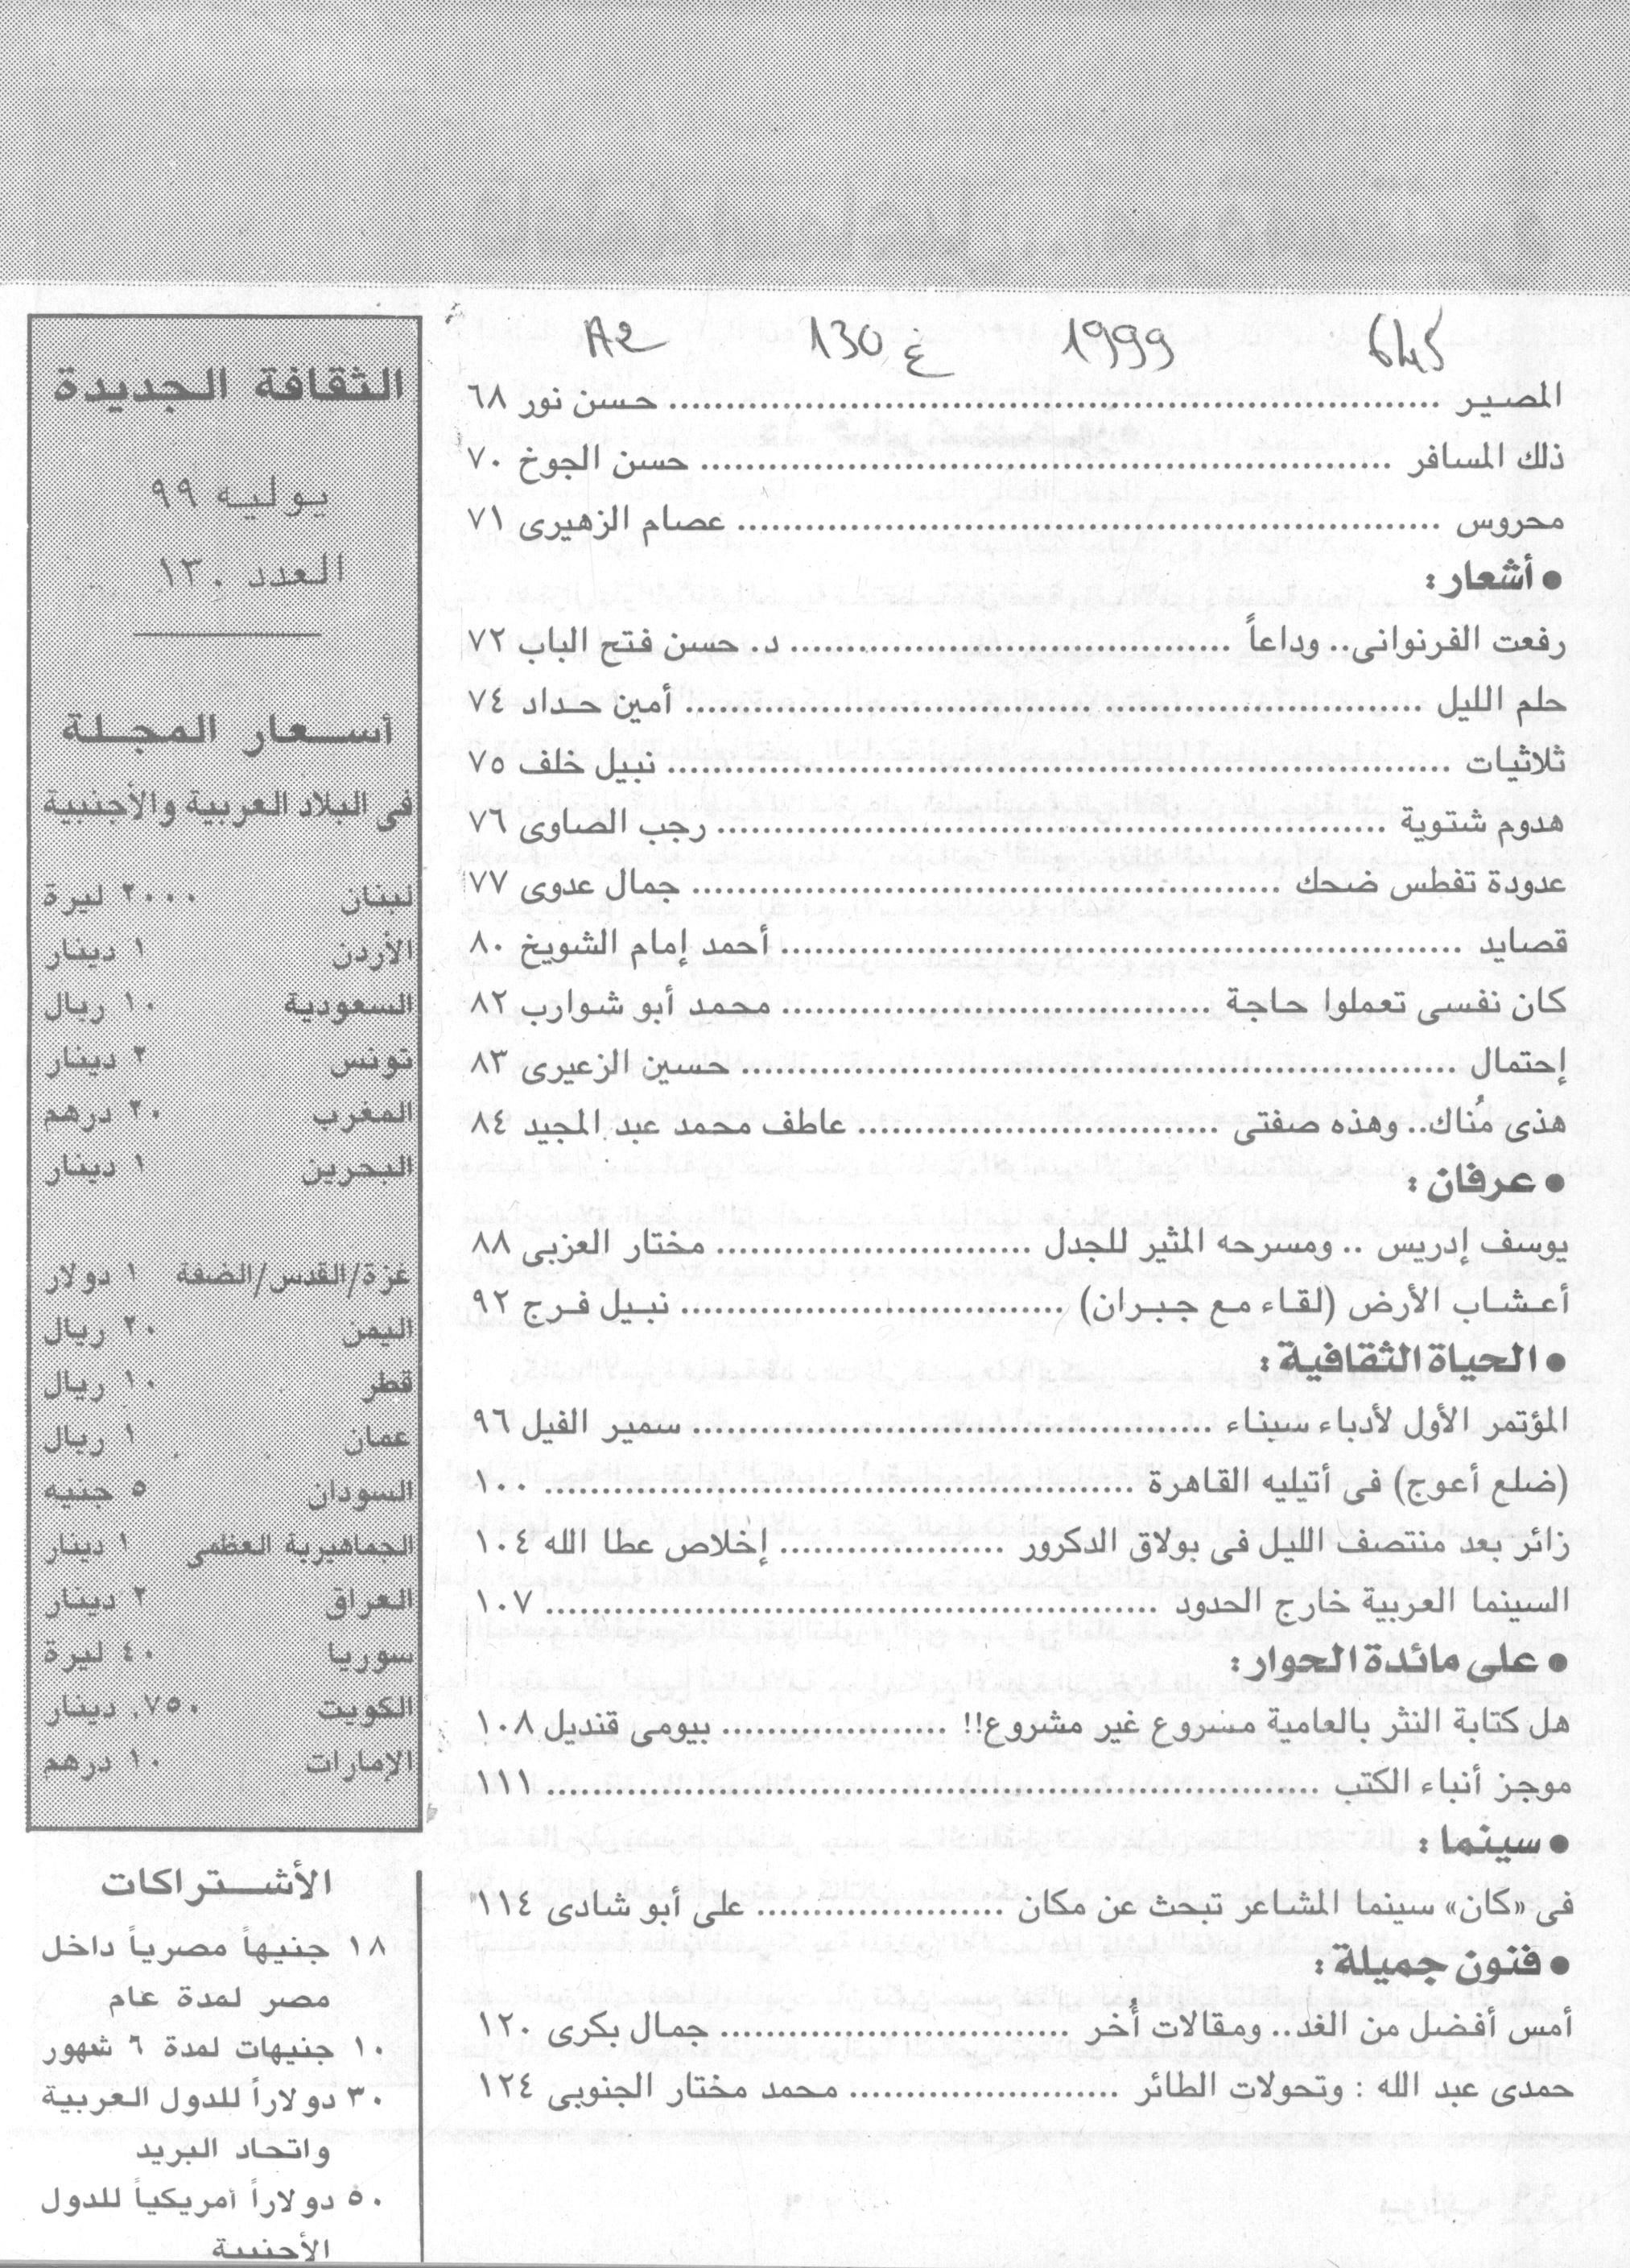 645 1999 ع 130 A2
المصير ........ حسن نور ٦٨
ذلك المسافر ........ حسن الجوخ ٧٠
محروس ........ عصام الزهيرى ٧١
● أشعار :
رفعت الفرنوانى.. وداعاً ........ د. حسن فتح الباب ٧٢
حلم الليل ........ أمين حداد ٧٤
ثلاثيات ........ نبيل خلف ٧٥
هدوم شتوية ........ رجب الصاوى ٧٦
عدودة تفطس ضحك ........ جمال عدوى ٧٧
قصايد ........ أحمد إمام الشويخ ٨٠
كان نفسى تعملوا حاجة ........ محمد أبو شوارب ٨٢
إحتمال ........ حسين الزعيرى ٨٣
هذى مُناك.. وهذه صفتى ........ عاطف محمد عبد المجيد ٨٤
● عرفان :
يوسف إدريس .. ومسرحه المثير للجدل ........ مختار العزبى ٨٨
أعشاب الأرض (لقاء مع جبران) ........ نبيل فرج ٩٢
● الحياة الثقافية :
المؤتمر الأول لأدباء سيناء ........ سمير الفيل ٩٦
(ضلع أعوج) فى أتيليه القاهرة ........ ١٠٠
زائر بعد منتصف الليل فى بولاق الدكرور ........ إخلاص عطا الله ١٠٤
السينما العربية خارج الحدود ........ ١٠٧
● على مائدة الحوار :
هل كتابة النثر بالعامية مشروع غير مشروع!! ........ بيومى قنديل ١٠٨
موجز أنباء الكتب ........ ١١١
● سينما :
فى «كان» سينما المشاعر تبحث عن مكان ........ على أبو شادى ١١٤
● فنون جميلة :
أمس أفضل من الغد.. ومقالات أُخر ........ جمال بكرى ١٢٠
حمدى عبد الله : وتحولات الطائر ........ محمد مختار الجنوبى ١٢٤
الثقافة الجديدة
يوليه ٩٩
العدد ١٣٠
أسعار المجلة
فى البلاد العربية والأجنبية
لبنان ٢٠٠٠ ليرة
الأردن ١ دينار
السعودية ١٠ ريال
تونس ٢ دينار
المغرب ٢٠ درهم
البحرين ١ دينار
غزة/القدس/الضفة ١ دولار
اليمن ٢٠ ريال
قطر ١٠ ريال
عمان ١ ريال
السودان ٥ جنيه
الجماهيرية العظمى ١ دينار
العراق ٢ دينار
سوريا ٤٠ ليرة
الكويت ٧٥٠, دينار
الإمارات ١٠ درهم
الأشتراكات
١٨ جنيهاً مصرياً داخل
مصر لمدة عام
١٠ جنيهات لمدة ٦ شهور
٣٠ دولاراً للدول العربية
واتحاد البريد
٥٠ دولاراً أمريكياً للدول
الأجنبية